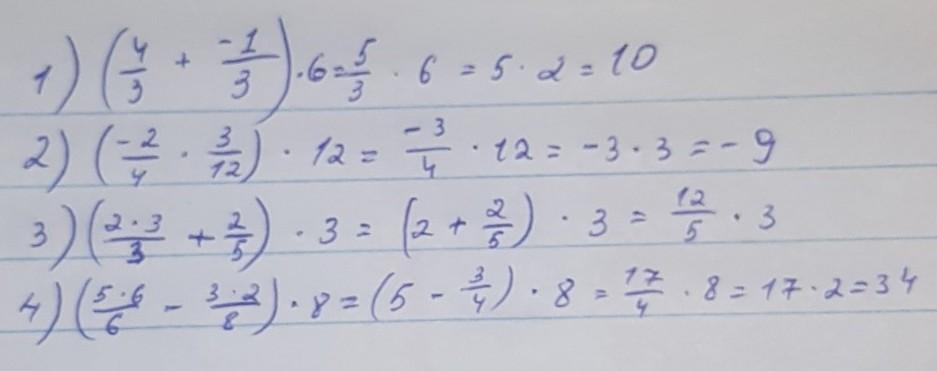 1) (4/3 + -1/3) · 6 = 5/3 · 6 = 5 · 2 = 10
2) (-2/4 · 3/12) · 12 = -3/4 · 12 = -3 · 3 = -9
3) (2·3/3 + 2/5) · 3 = (2 + 2/5) · 3 = 12/5 · 3
4) (5·6/6 - 3·2/8) · 8 = (5 - 3/4) · 8 = 17/4 · 8 = 17 · 2 = 34